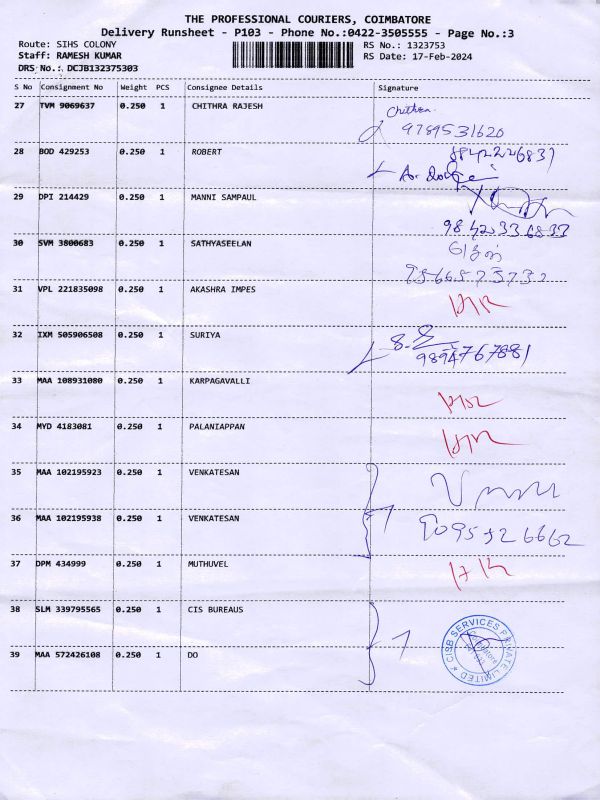 THE PROFESSIONAL COURIERS, COIMBATORE
Delivery Runsheet - P103 - Phone No.:0422-3505555 - Page No.:3
Route: SIHS COLONY RS No.: 1323753
Staff: RAMESH KUMAR RS Date: 17-Feb-2024
DRS No.: DCJB132375303
S No Consignment No Weight PCS Consignee Details Signature
27 TVM 9069637 0.250 1 CHITHRA RAJESH Chithra
9789531620
28 BOD 429253 0.250 1 ROBERT
29 DPI 214429 0.250 1 MANNI SAMPAUL
98420336833
30 SVM 3800683 0.250 1 SATHYASEELAN
31 VPL 221835098 0.250 1 AKASHRA IMPES
32 IXM 505906508 0.250 1 SURIYA
33 MAA 108931080 0.250 1 KARPAGAVALLI
34 MYD 4183081 0.250 1 PALANIAPPAN
35 MAA 102195923 0.250 1 VENKATESAN
36 MAA 102195938 0.250 1 VENKATESAN
9095526662
37 DPM 434999 0.250 1 MUTHUVEL
38 SLM 339795565 0.250 1 CIS BUREAUS
CISB SERVICES PRIVATE LIMITED
Coimbatore
39 MAA 572426108 0.250 1 DO